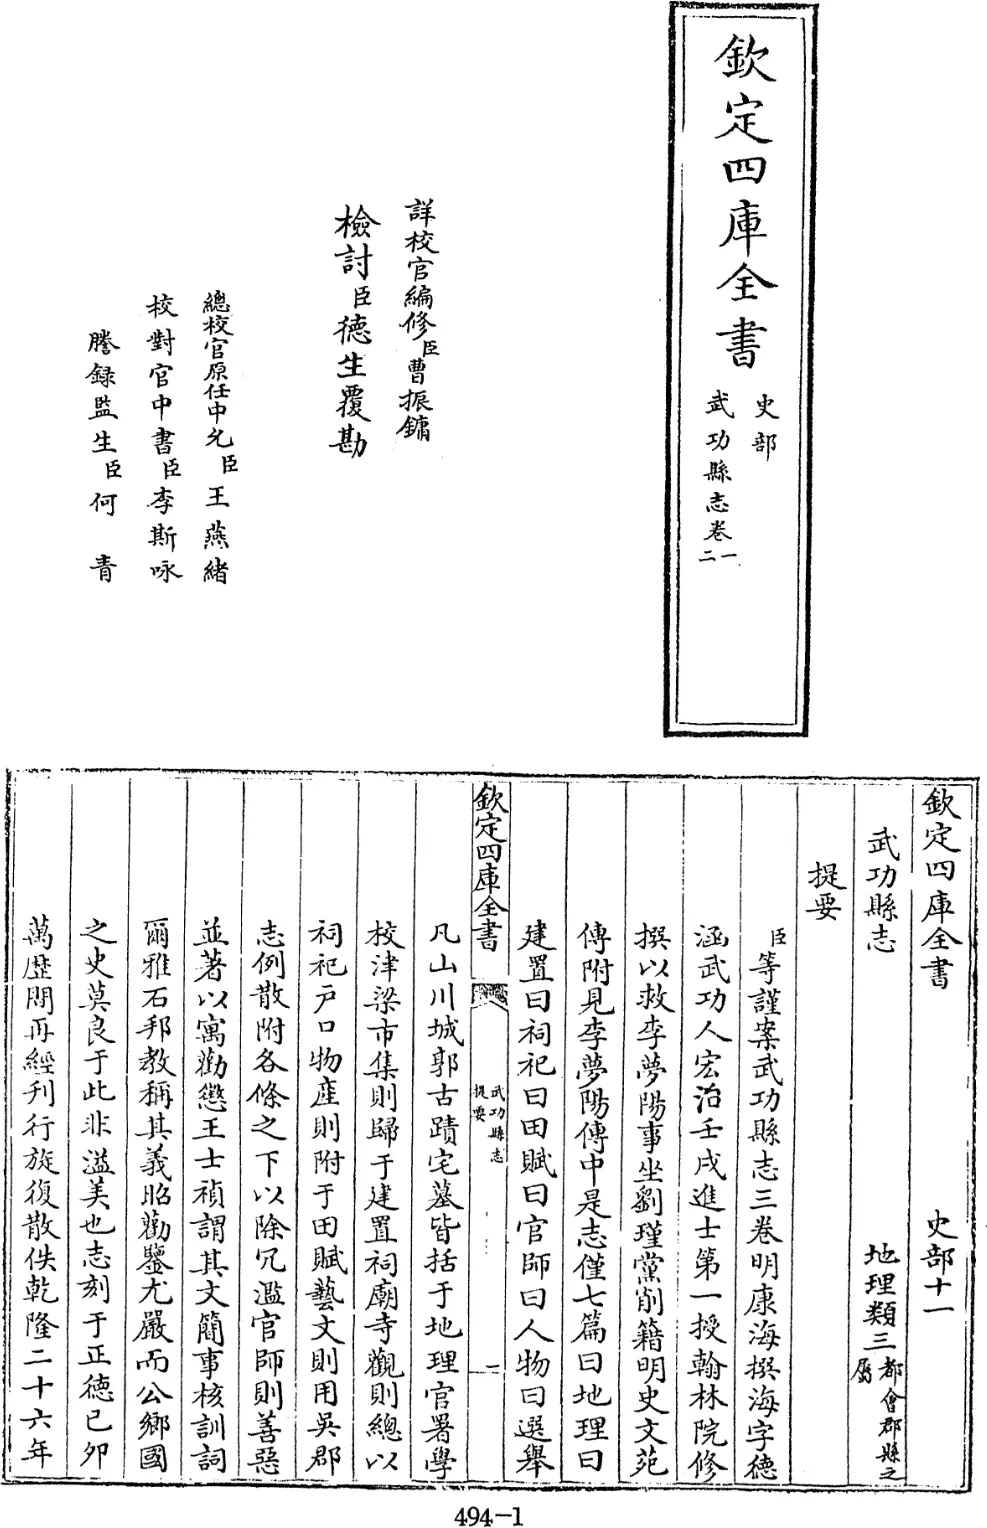 欽定四庫全書
史部
武功縣志卷一
二
詳校官編修臣曹振鏞
檢討臣德生覆勘
總校官原任中允臣王燕緒
校對官中書臣李斯咏
謄錄監生臣何青
欽定四庫全書 史部十一
武功縣志 地理類三都會郡縣之
屬
提要
臣等謹案武功縣志三卷明康海撰海字德
涵武功人宏治壬戌進士第一授翰林院修
撰以救李夢陽事坐劉瑾黨削籍明史文苑
傳附見李夢陽傳中是志僅七篇曰地理曰
建置曰祠祀曰田賦曰官師曰人物曰選舉
欽定四庫全書
武功縣志
提要
一
凡山川城郭古蹟宅墓皆括于地理官署學
校津梁市集則歸于建置祠廟寺觀則總以
祠祀户口物產則附于田賦藝文則用吳郡
志例散附各條之下以除冗濫官師則善惡
並著以寓勸懲王士禎謂其文簡事核訓詞
爾雅石邦教稱其義昭勸鑒尤嚴而公鄉國
之史莫良于此非溢美也志刻于正德己卯
萬歷間再經刋行旋復散佚乾隆二十六年
494-1